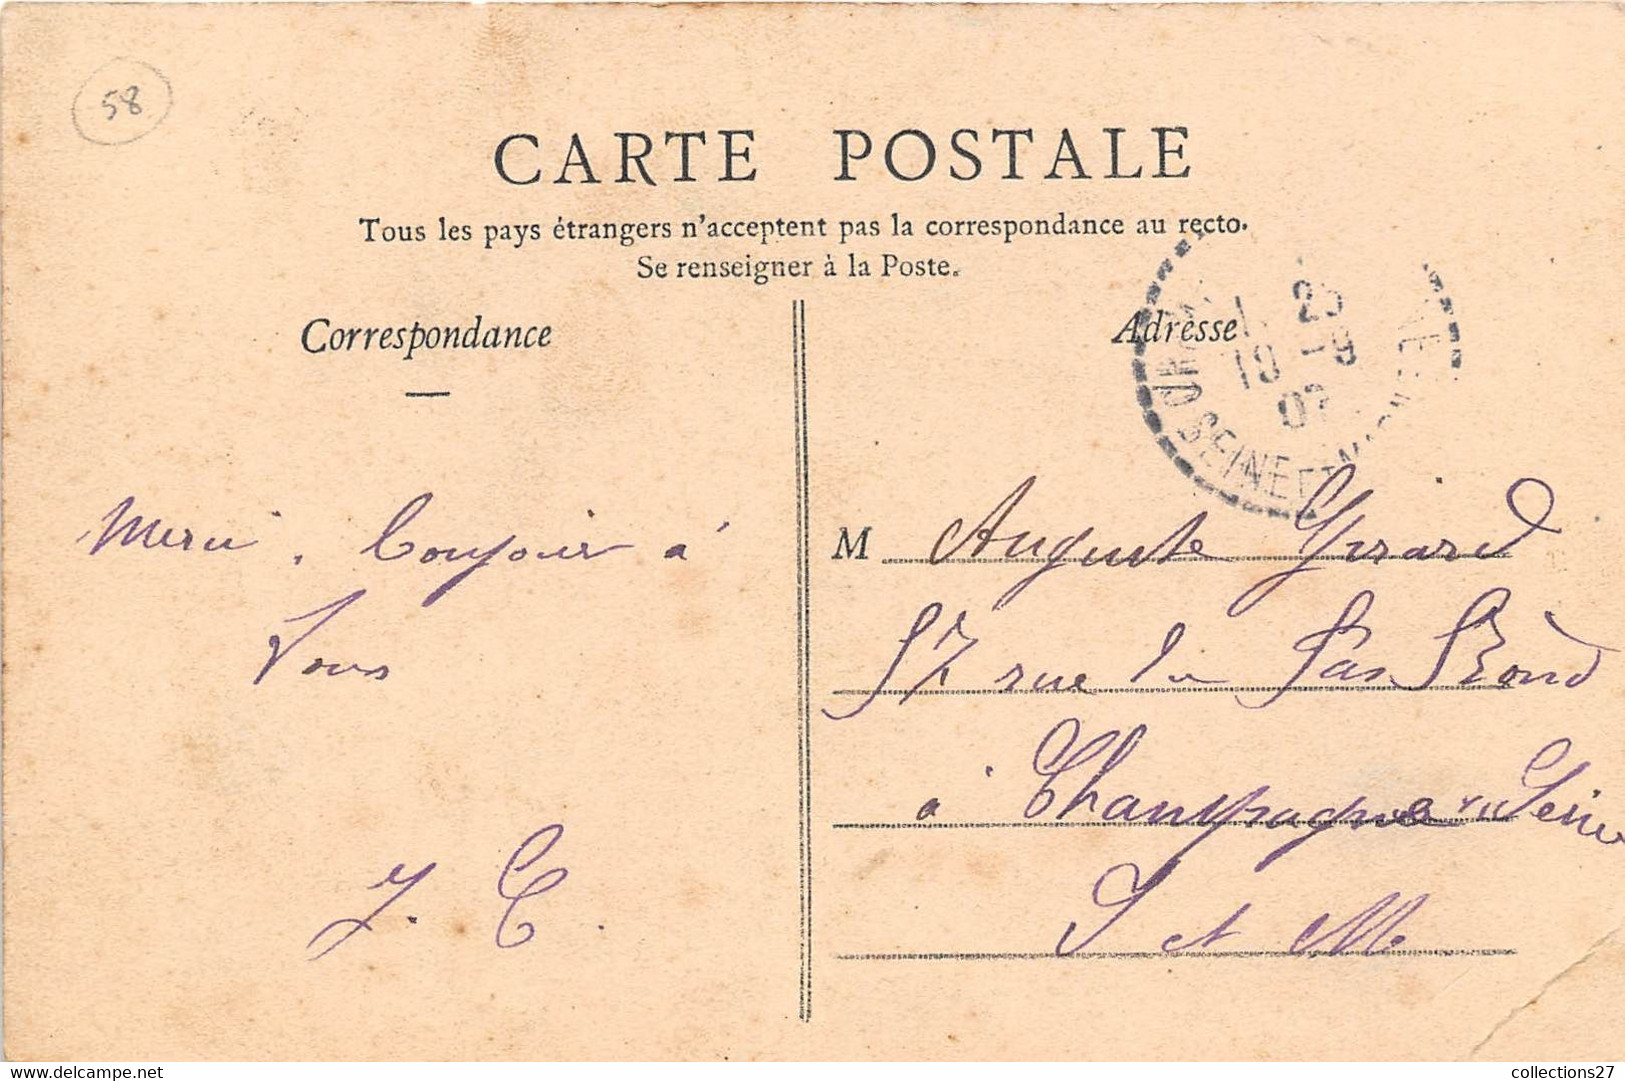 58
CARTE POSTALE
Tous les pays étrangers n'acceptent pas la correspondance au recto.
Se renseigner à la Poste.
Correspondance
Adresse
19 -9
07
SEINE ET M
Merci. Bonjour à
Vous
J. C.
M Auguste Girard
57 rue du Pas Rond
à Champagne s/ Seine
S et M
www.delcampe.net
collections27